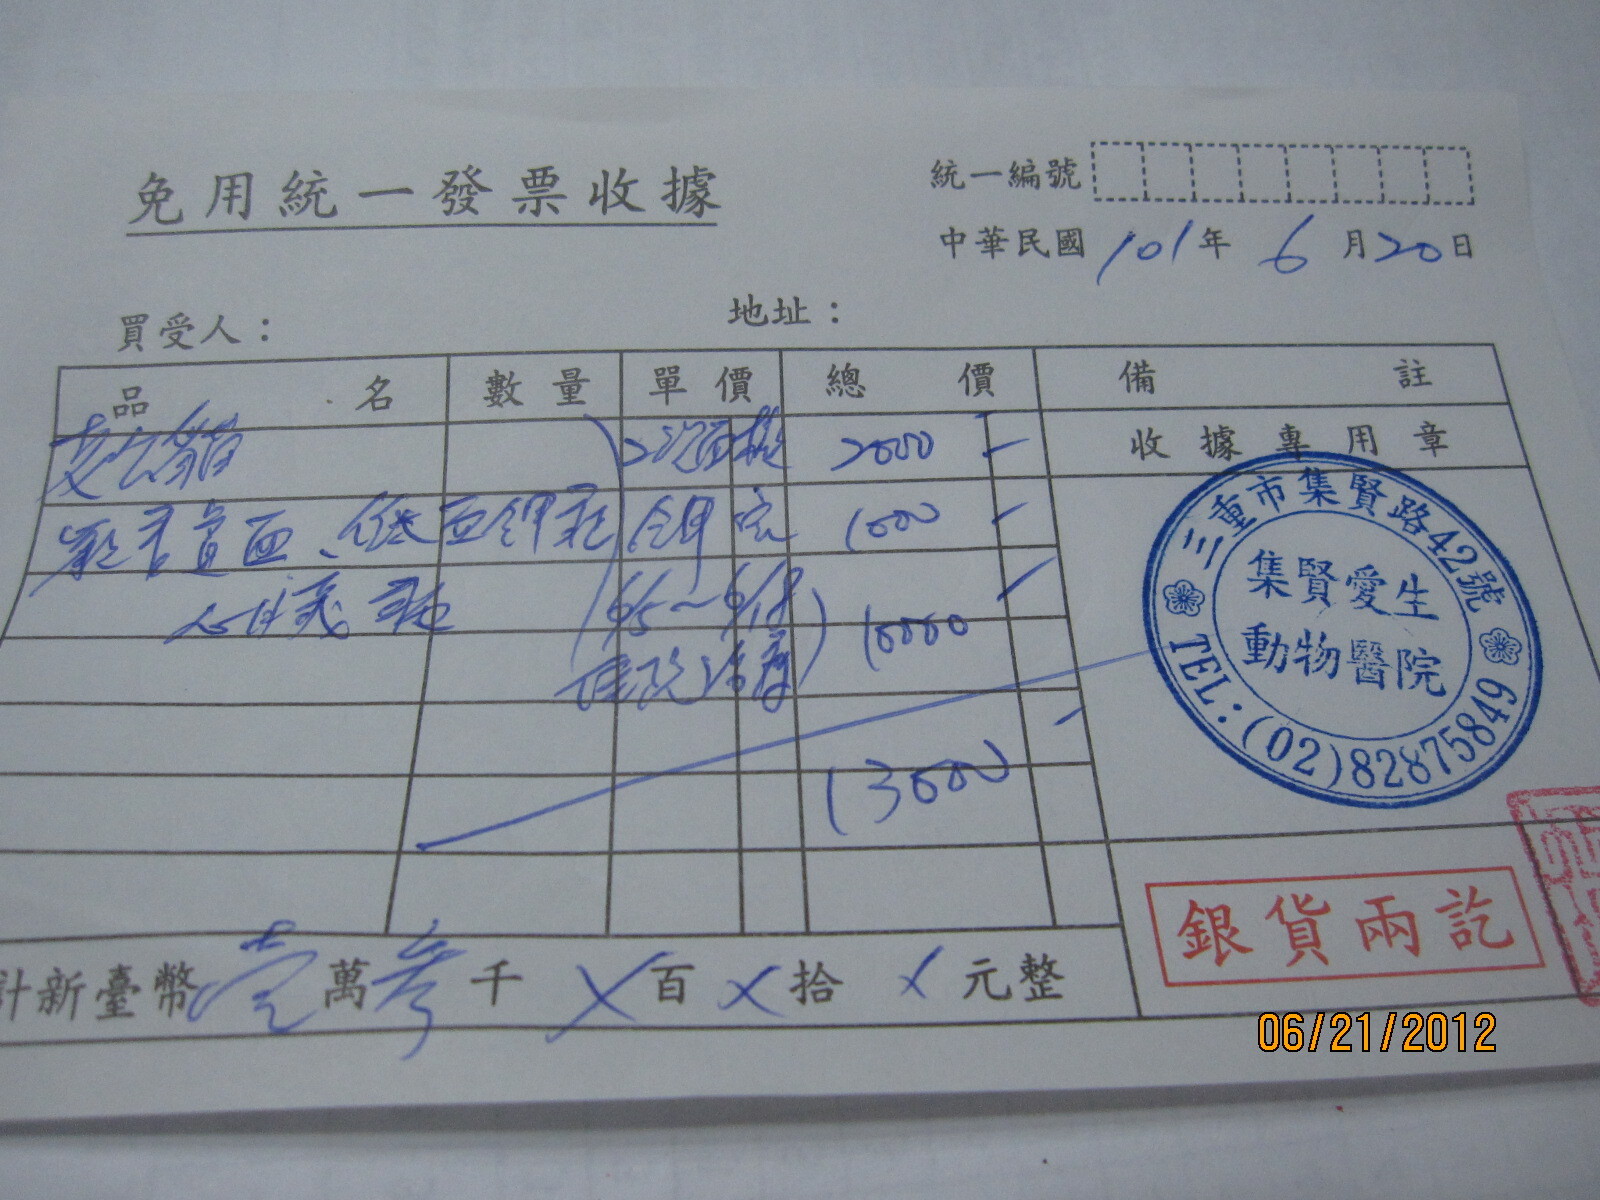 免用統一發票收據
統一編號
中華民國101年6月20日
買受人：
地址：
品名 數量 單價 總價 備註
2000
收據專用章
1000
(6/5~6/18
10000
住院治療)
13000
三重市集賢路42號
集賢愛生
動物醫院
TEL:(02)82875849
銀貨兩訖
計新臺幣壹萬參千X百X拾X元整
06/21/2012